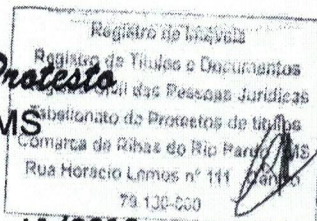 Registro de Imóveis
Registro de Titulos e Documentos
Protesto
Civil das Pessoas Jurídicas
MS
Tabelionato de Protestos de titulos
Comarca de Ribas do Rio Pardo MS
Rua Horacio Lemos nº 111
79.130-000